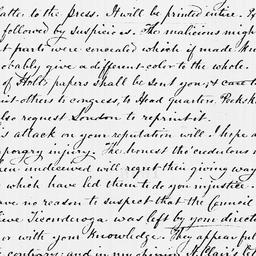 latter to the Press. It will be printed entire.
followed by suspicions. The malicious migh
t parts were concealed which if made kn
obably give a different color to the whole.
of Holts papers shall be sent you, &
nit others to congress, to Head Quarters
lso request London to reprint it.
is attack on your reputation will I hope
mporary injury. The honest tho' credulous
en undeceived will regret their giving way
which have led them to do you injustice.
ave no reason to suspect that the Council
lieve Ticonderoga was left by your direct
or with your knowledge. They appear ful
contrary; and in my opinion St. Clair's let